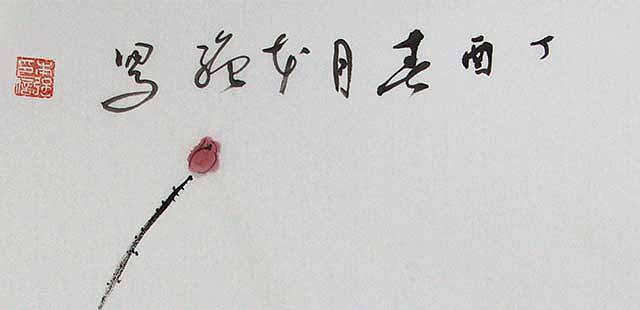 丁酉春月本强写